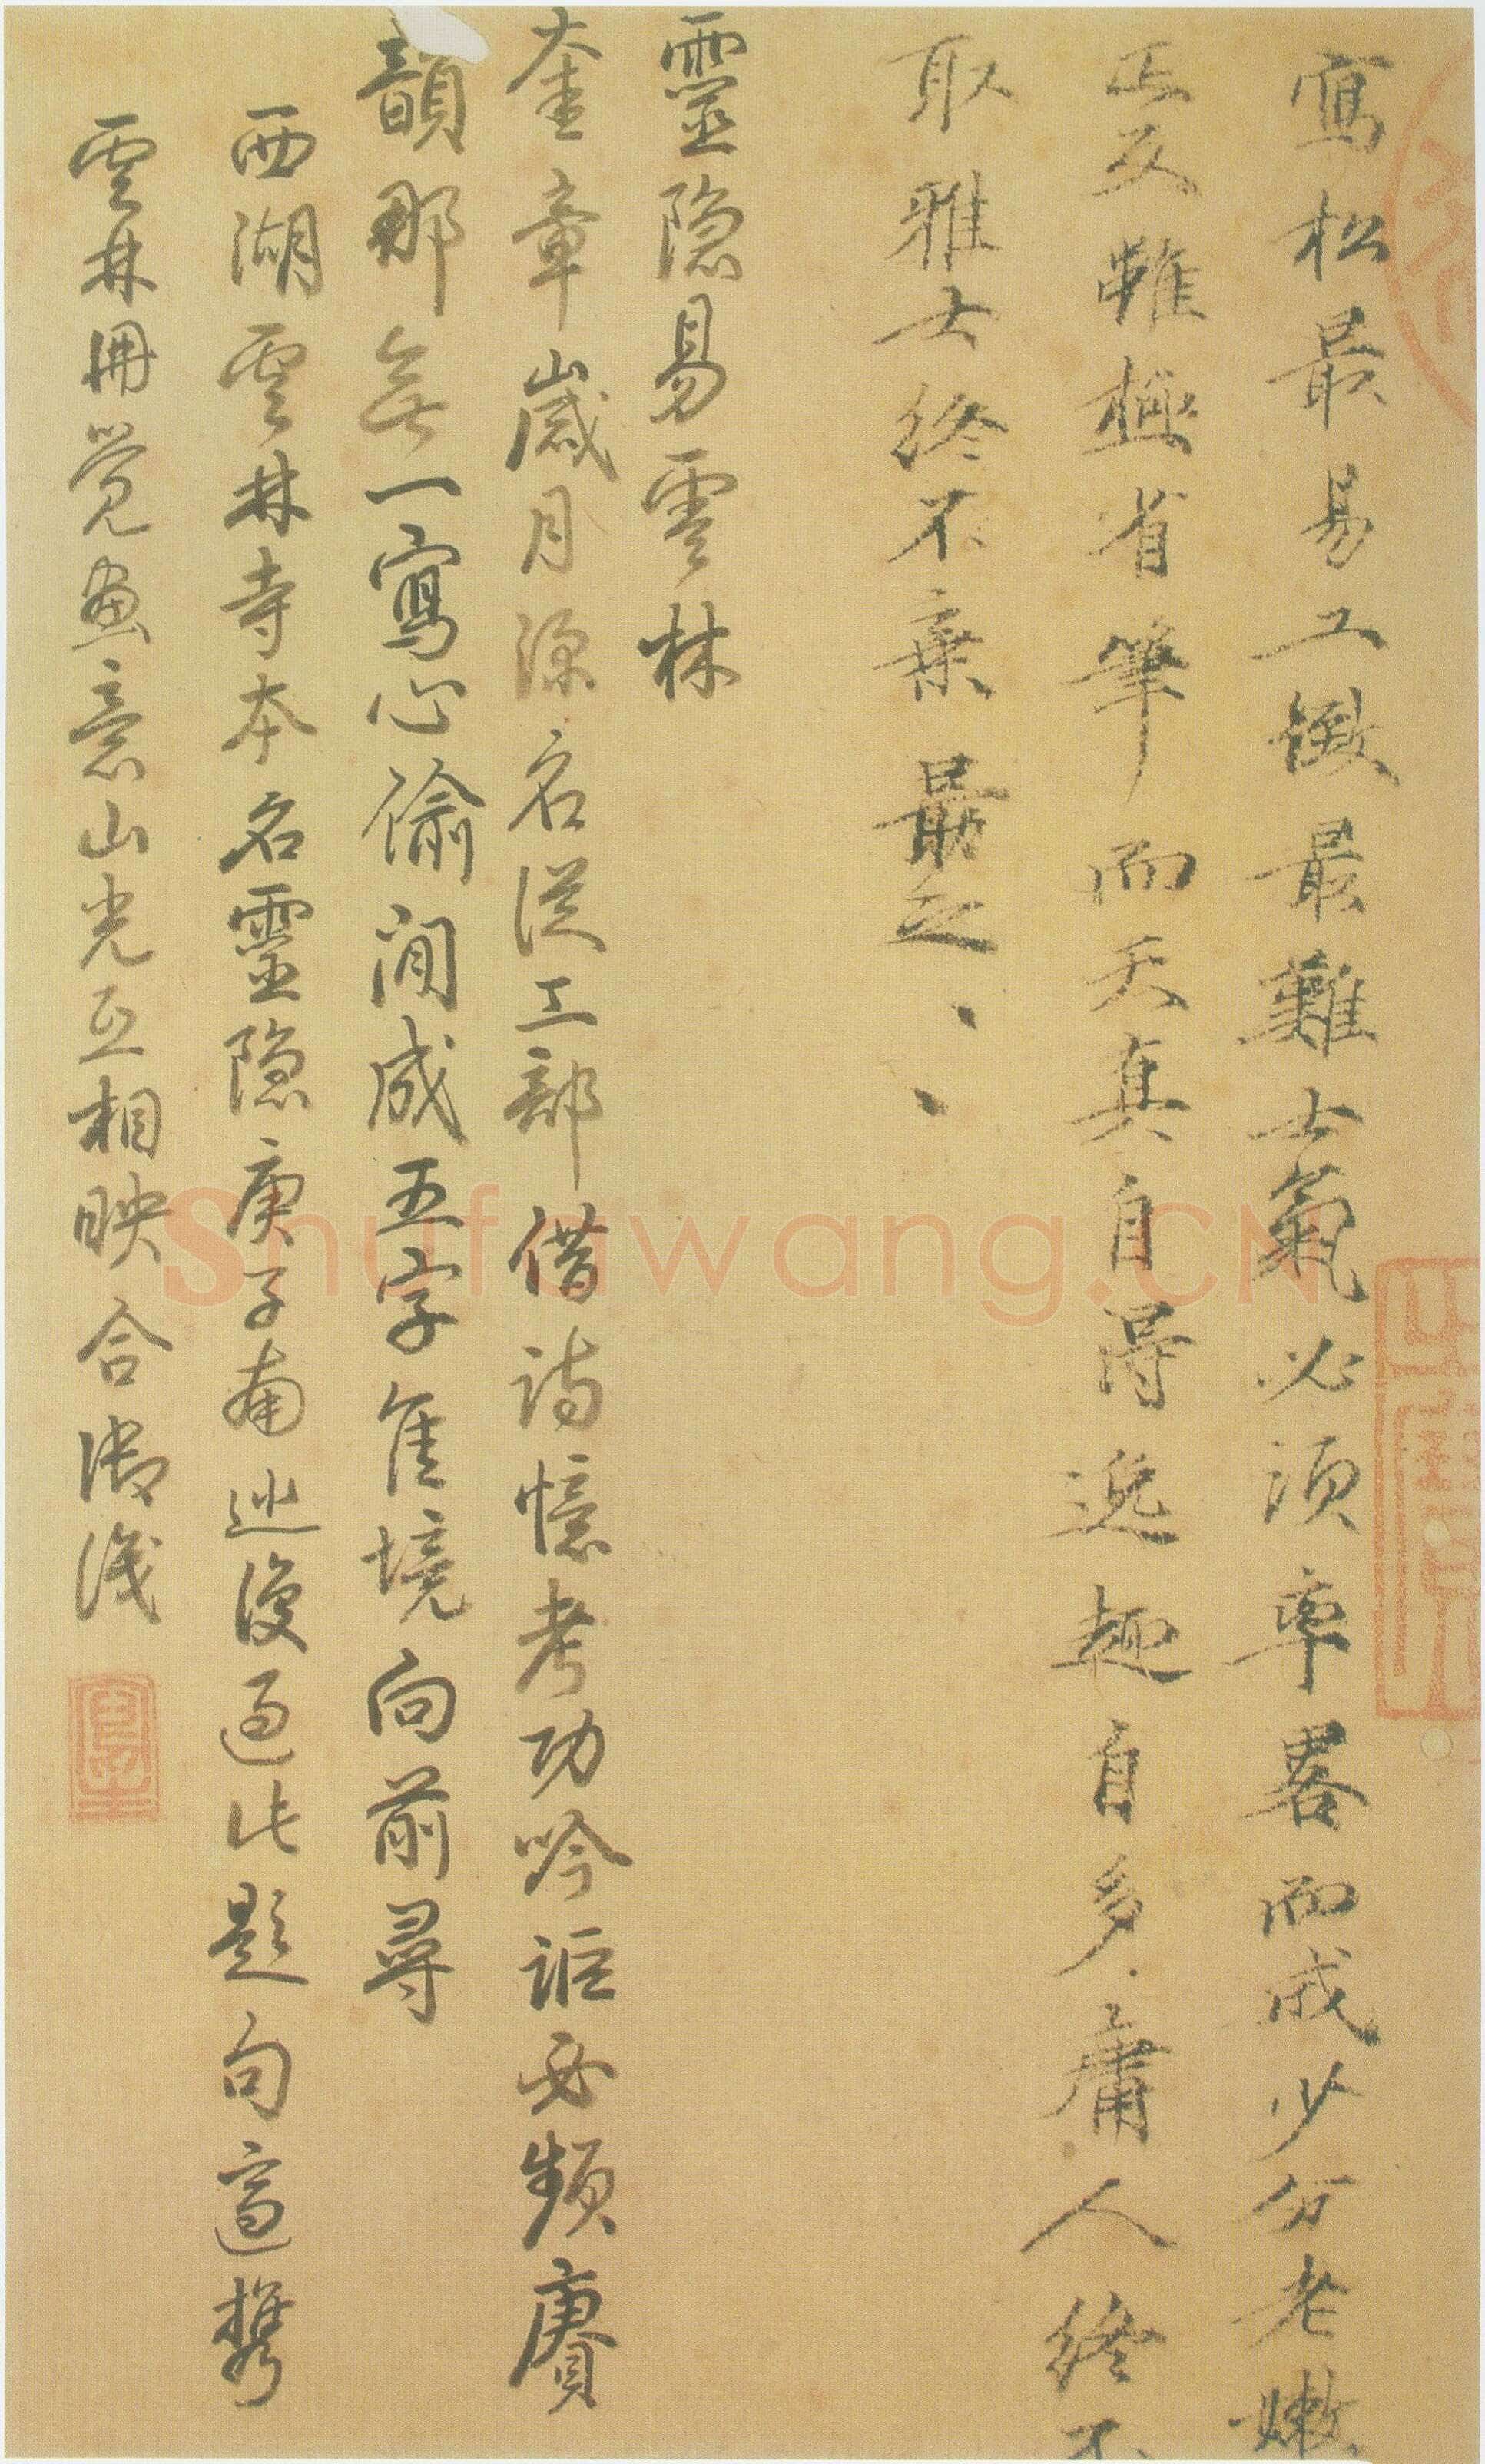 寫松最易工緻最難士氣必須率畧而成少分老嫩
正反雖極省筆而天真自得逸趣自多庸人終不
取雅士終不棄勗之、、
靈隐易雲林
奎章歲月深名從工部借詩憶考功吟詎必頻賡
韻那無一寫心偷閒成五字隹境向前尋
西湖雲林寺本名靈隐庚子南巡復過此題句適携
雲林冊覺画意山光互相映合御識
Shufawang.CN